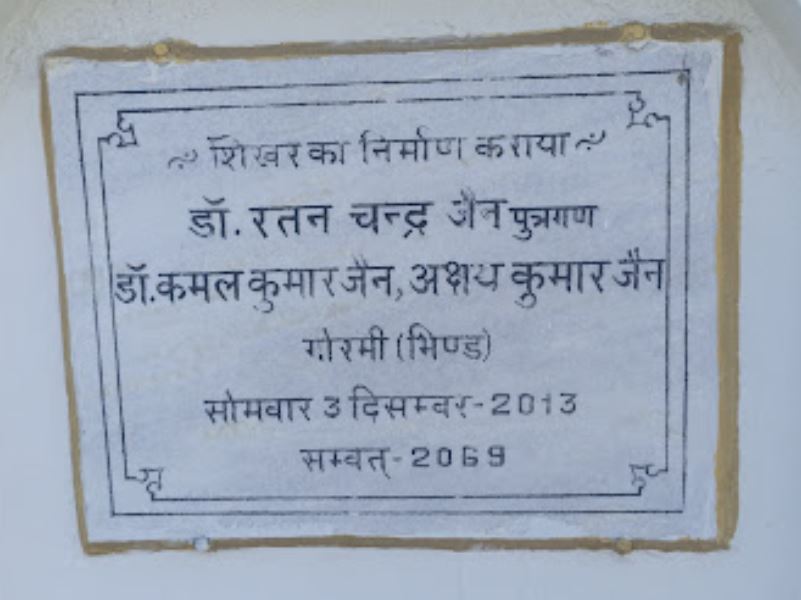 ~ शिखर का निर्माण कराया ~
डॉ. रतन चन्द्र जैन पुत्रगण
डॉ. कमल कुमार जैन, अक्षय कुमार जैन
गोरमी (भिण्ड)
सोमवार 3 दिसम्वर-2013
सम्वत्-2069